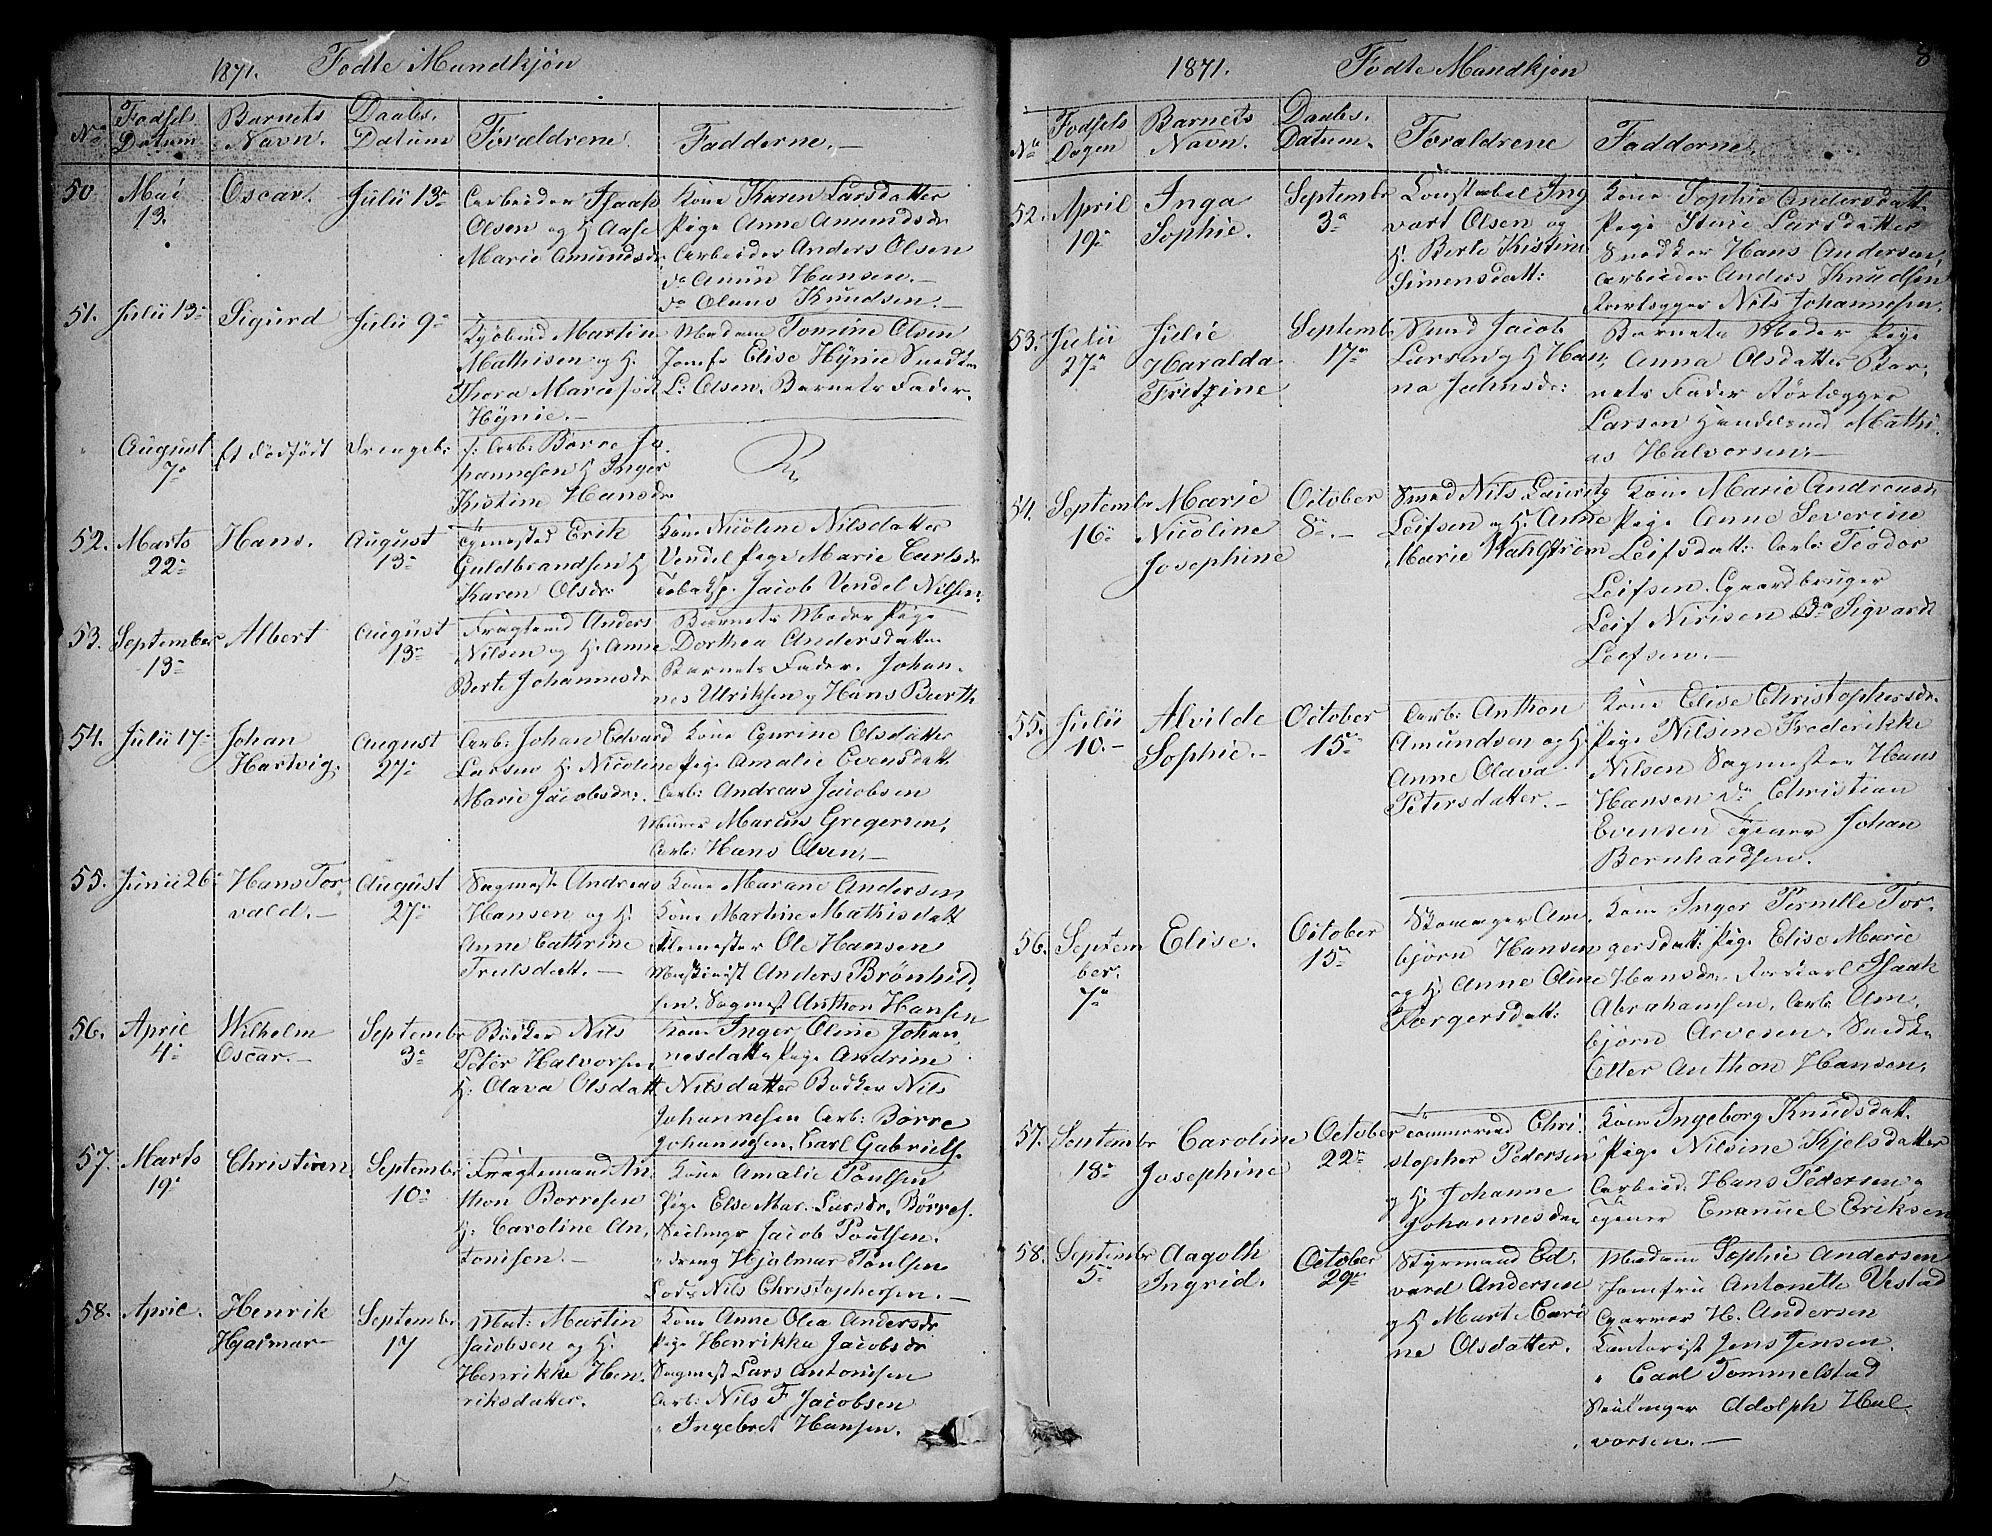 1871. Fodte Mandkjön
No
Fodsels Datum
Barnets Navn.
Daabs. Datum
Foraldrene
Fadderne.
50 Mai 13. Oscar. Julii 13
Arbeider Isaak
Olsen og H Aase
Marie Amundsdr
Kone Karen Larsdatter
Pige Anne Amundsdr
Arbeider Anders Olsen
do Anun Hansen.
do Olaus Knudsen.
51. Julii 13 Sigurd Julii 9
Kjöbmd Martin
Mathisen og H.
Thora Marie född
Hÿnie.
Madam Tomine Olsen
Jomfr Elise Hÿnie Snedker
L. Olsen. Barnets Fader.
August 7 Et dödfödt Drengeb.
f. Arb: Börre Jo
hannesen H Inger
Kistine Hansdr
52. Marts 22 Hans. August 13
Erik
Guldbrandsen H
Karen Olsdr
Kone Nicoline Nilsdatter
Vendel Pige Marie Carlsdr
Jacob Vendel Nilsen.
53. September 13 Albert August 13
Fragtemd Anders
Nilsen og H. Anne
Berte Johannesdr
Barnets Moder Pige
Dorthea Andersdatter
Barnets Fader. Johan
nes Ulriksen og Hans Barth
54. Julii 17 Johan Hartvig. August 27
Arb: Johan Edvard
Larsen H. Nicoline
Marie Jacobsdr.
Kone Gurine Olsdatter
Pige Amalie Evensdatt
Arb: Andreas Jacobsen
Murer Marcus Gregersen,
Arb: Hans Olsen.
55. Junii 26 Hans Tor vald. August 27
Sagmest Andreas
Hansen og H.
Anne Cathrine
Trulsdatt.
Kone Marane Andersen
Kone Martine Mathisdatt
Ole Hansen
Maskinist Anders Brönhild
sen. Sagmest Anthon Hansen
56. April 4 Wilhelm Oscar. Septembr 3
Bödker Nils
Peter Halvorsen
H. Olava Olsdatt
Kone Inger Oline Johan
nesdatter Pige Andrine
Nilsdatter Bödker Nils
Johannesen Arb: Börre
Johannesen. Carl Gabriels.
57. Marts 19 Christian September 10
Fragtemand An
thon Borresen
H. Caroline An
tonisen.
Kone Amalie Poulsen
Pige Else Mar. Larsdr. Börres.
Jacob Poulsen.
" dreng Hjalmar Poulsen
Lods Nils Christophersen.
58. April. Henrik Hjalmar Septembr 17
Mat: Martin
Jacobsen og H.
Henrikke Hen
riksdatter.
Kone Anne Olea Andersdr
Pige Henrikka Jacobsdr
Sagmest Lars Antonisen
Arb: Nils F Jacobsen
" Ingebret Hansen.
8
1871. Fodte Mandkjön
No
Fodsels Dagen
Barnets Navn.
Daabs. Datum.
Foraldrene
Fadderne.
52. April 19 Inga Sophie. Septembr 3
Konstabel Ing
vart Olsen og
H. Berte Kistine
Simensdatt:
Kone Sophie Andersdatt.
Pige Stine Larsdatter
Snedker Hans Andersen,
Arbeider Anders Knudsen
Rorlegger Nils Johannesen.
53. Julii 27 Julie Haralda Fritzine Septemb 17
Smed Jacob
Larsen og H Han
na Jahnsdr:
Barnets Moder Pige
Anna Olsdatter Bar
nets Fader Rörlegger
Larsen Handelsmd Mathi
as Halvorsen.
54. Septembr 16 Marie Nicoline Josephine October 8.
Smed Nils Lauritz
Leifsen og H. Anne
Marie Wahlström
Kone Marie Andreasdr
Pige Anne Severine
Leifsdatt: Arb: Teodor
Leifsen. Gaardbruger
Leif Nirisen Do Sigvardt
Leifsen.
55. Julii 10. Alvilde Sophie. October 15
Arb: Anthon
Amundsen og H.
Anne Olava
Petersdatter.
Kone Elise Christophersdr.
Pige Nilsine Frederikke
Nilsen Sagmester Hans
Hansen do Christian
Evensen Johan
Bernhardsen.
56. Septem ber. 7 Elise. October 15
Am
björn Hansen
og H. Anne Oline
Torgersdatt:
Kone Inger Pernille Tor
gersdatt: Pige Elise Marie
Hansdr. Isaak
Abrahamsen, Arb: Am
björn Arvesen. Snedker
Anthon Hansen.
57. Septembr 18 Caroline Josephine October 22
Tömmermd Chri
stopher Pedersen
og H. Johanne
Johannesdr
Kone Ingeborg Knudsdatt.
Pige Nilsine Kjelsdatter
Arbeid: Hans Pedersen,
Emanuel Eriksen
58. Septembr 5 Aagoth Ingrid. October 29
Styrmand Ed
vard Andersen
og H Mart. Cari
ne Olsdatter.
Madam Sophie Andersen
Jomfru Antonette Vestad
H. Andersen
Kontorist Jens Jensen
" Carl Tommelstad
Adolph Hal
vorsen.